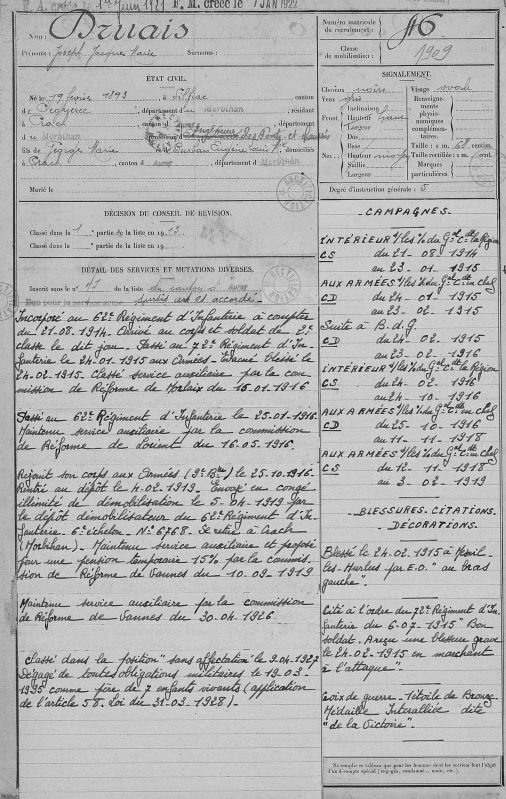 F. A. créée le 1er Juin 1921 F. M. créée le 7 JAN 1922
Nom : Druais
Prénoms : Joseph Jacques Marie Surnoms :
Numéro matricule du recrutement : 46
Classe de mobilisation : 1909
ÉTAT CIVIL.
Né le 19 février 1893, à canton
d département d Morbihan, résidant
à Crach
d Morbihan Ponts et
fils de Marie et de Eugénie domiciliés
à Crach canton d Auray département d Morbihan
Marié le
SIGNALEMENT.
Cheveux noirs Visage ovale
Yeux gris
Front
Inclinaison
Hauteur
Largeur
Nez
Dos
Base
Hauteur
Saillie
Largeur
Renseignements physionomiques complémentaires.
Taille : 1 m. 68 centim
Taille rectifiée : 1 m. cent.
Marques particulières
Degré d'instruction générale : 5
DÉCISION DU CONSEIL DE REVISION.
Classé dans la 1 partie de la liste en 1913.
Classé dans la partie de la liste en 19
DÉTAIL DES SERVICES ET MUTATIONS DIVERSES.
Inscrit sous le n° 41 de la liste du canton d' Auray
Bon pour le service armé
sursis art et accordé.
Incorporé au 62e Régiment d'Infanterie à compter
du 21-08-1914. Arrivé au corps et soldat de 2e
classe le dit jour. Passé au 72e Régiment d'In-
fanterie le 24-01-1915 aux Armées. Evacué Blessé le
24-02-1915. Classé service auxiliaire par la com-
mission de Réforme de Morlaix du 15-01-1916
Passé au 62e Régiment d'Infanterie le 25-01-1916.
Maintenu service auxiliaire par la commission
de Réforme de Lorient du 16-05-1916.
Rejoint son corps aux Armées le 25-10-1916.
Rentré au dépôt le 4-02-1919. Envoyé en congé
illimité de démobilisation le 5-04-1919 par
le dépôt démobilisateur du 62e Régiment d'In-
fanterie. 6e échelon. No 6768. Se retire à Crach
(Morbihan). Maintenu service auxiliaire et proposé
pour une pension temporaire 15% par la commis-
sion de Réforme de Vannes du 10-09-1919
Maintenu service auxiliaire par la commission
de Réforme de Vannes du 30-04-1926
classé dans la position "sans affectation" le 9-04-1927
Dégagé de toutes obligations militaires le 19-03-
1935 comme père de 7 enfants vivants (application
de l'article 58. Loi du 31-03-1928).
-CAMPAGNES-
INTÉRIEUR s/les /o du Gal Cdt la Région
CS du 21-08-1914
au 23-01-1915
AUX ARMÉES s/les /o du Gal Cdt en chef
CD du 24-01-1915
au 23-02-1915
Suite à B.d.G.
CD du 24-02-1915
au 23-02-1916
INTÉRIEUR s/les /o du Gal Cdt la Région
CS du 24-02-1916
au 24-10-1916
AUX ARMÉES s/les /o du Gal Cdt en chef
CD du 25-10-1916
au 11-11-1918
AUX ARMÉES s/les /o du Gal Cdt en chef
CS du 12-11-1918
au 3-02-1919
-BLESSURES.CITATIONS.
DÉCORATIONS.
Blessé le 24-02-1915 à Mesnil-
les-Hurlus par E.O. "au bras
gauche".
Cité à l'ordre du 72e Régiment d'In-
fanterie du 6-07-1915 "Bon
soldat. A reçu une blessure grave
le 24-02-1915 en marchant
à l'attaque".
Croix de guerre - 1 étoile de Bronze
Médaille Interalliée dite
"de la Victoire".
Ne remplir ce tableau que pour les hommes dont les services font l'objet
d'un décompte spécial